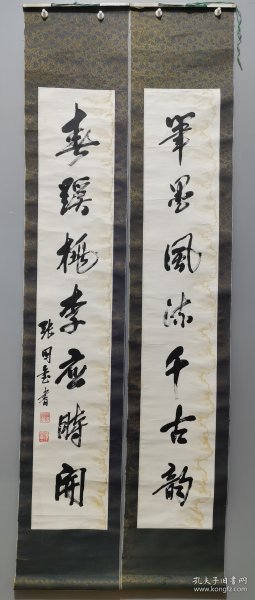 筆墨風流千古韻
春蹊桃李应時開
孔夫子旧书网
www.kongfz.com